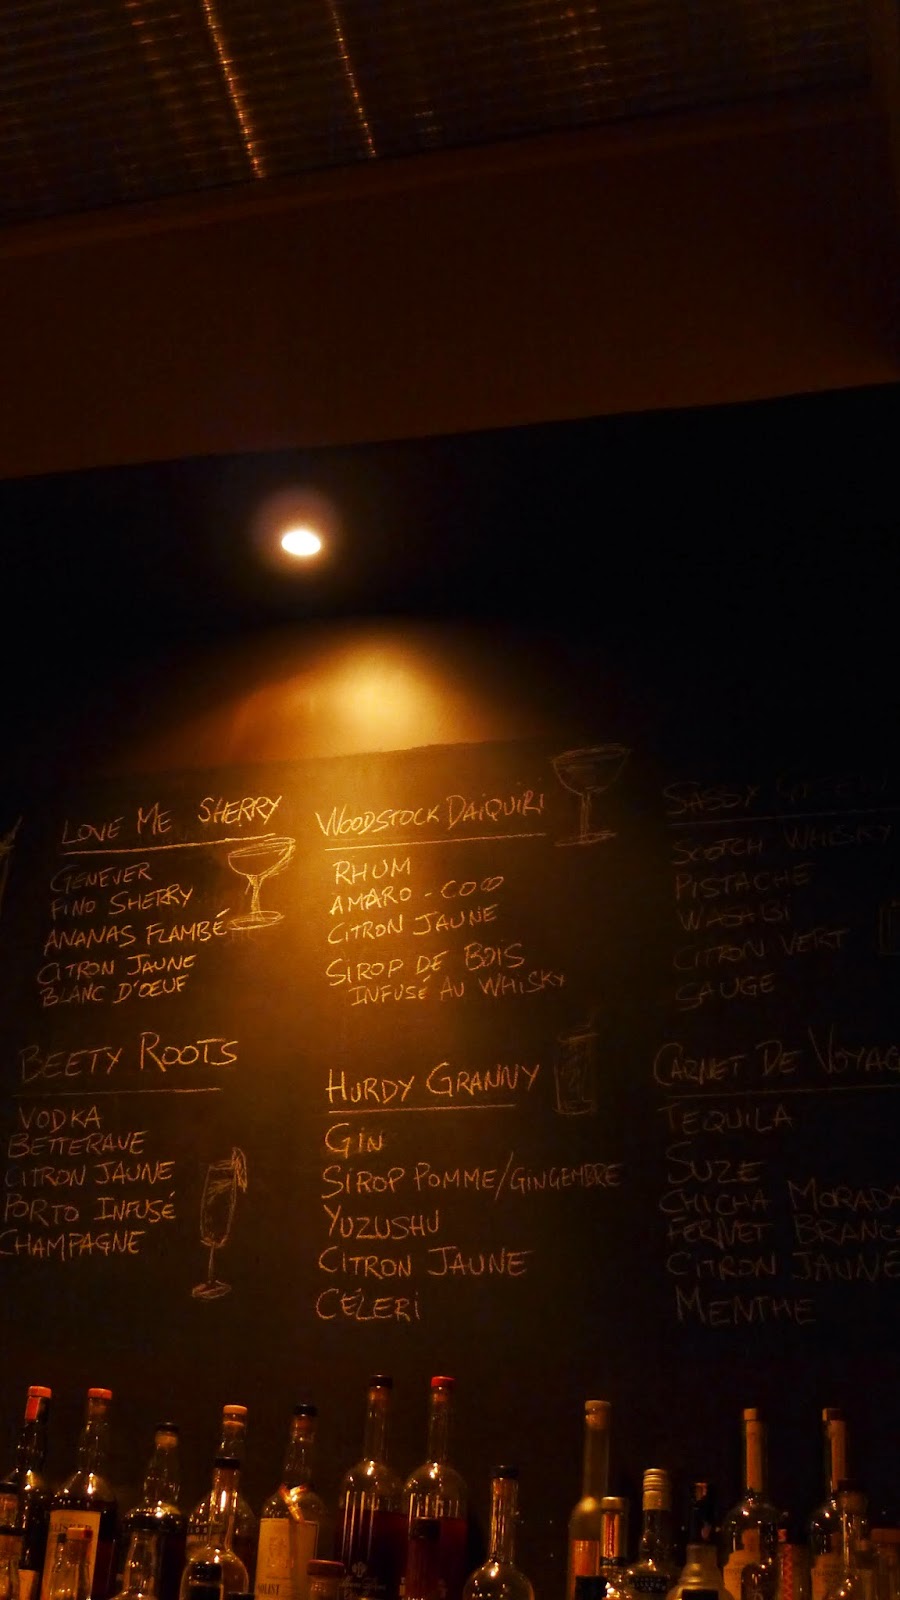 LOVE ME SHERRY
GENEVER
FINO SHERRY
ANANAS FLAMBÉ
CITRON JAUNE
BLANC D'OEUF
WOODSTOCK DAIQUIRI
RHUM
AMARO - COCO
CITRON JAUNE
SIROP DE BOIS
INFUSÉ AU WHISKY
SASSY
SCOTCH WHISKY
PISTACHE
WASABI
CITRON VERT
SAUGE
BEETY ROOTS
VODKA
BETTERAVE
CITRON JAUNE
PORTO INFUSÉ
CHAMPAGNE
HURDY GRANNY
GIN
SIROP POMME/GINGEMBRE
YUZUSHU
CITRON JAUNE
CÉLERI
CARNET DE VOYAG
TEQUILA
SUZE
CHICHA MORADA
FERNET BRANC
CITRON JAUNE
MENTHE